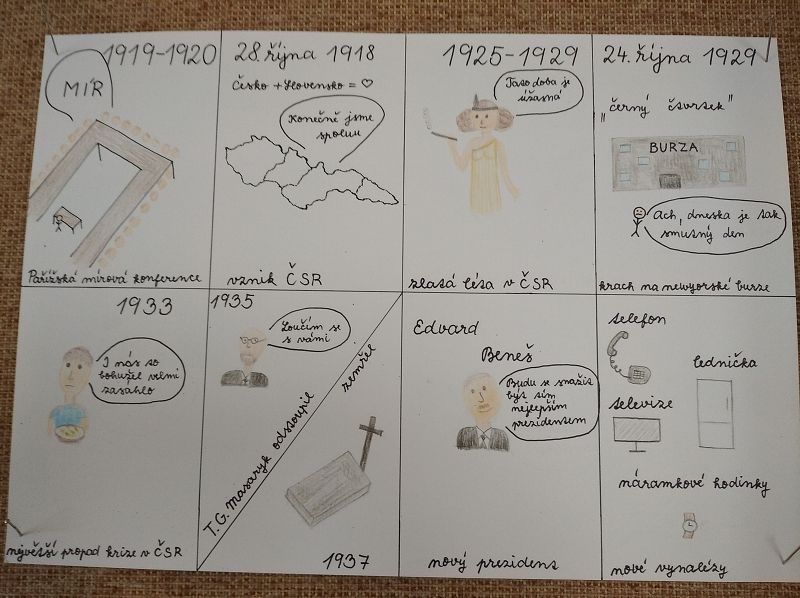 1919-1920
MÍR
Pařížská mírová konference
28. října 1918
Česko + Slovensko = ♡
Konečně jsme
spolu
vznik ČSR
1925-1929
Tato doba je
úžasná
zlatá léta v ČSR
24. října 1929
"černý čtvrtek"
BURZA
Ach, dneska je tak
smutný den
krach na newyorské burze
1933
I nás to
bohužel velmi
zasáhlo
největší propad krize v ČSR
1935
Loučím se
s vámi
T. G. Masaryk odstoupil
zemřel
1937
Edvard
Beneš
Budu se snažit
být tím
nejlepším
prezidentem
nový prezident
telefon
lednička
televize
náramkové hodinky
nové vynálezy